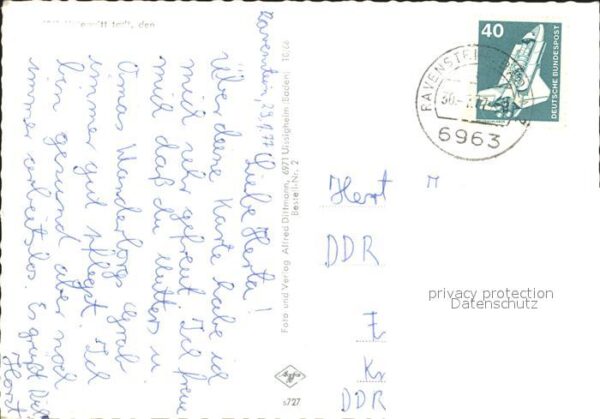 Ravenstein, 29.9.77
Liebe Herta!
Über deine Karte habe ich
mich sehr gefreut. Ich freue
mich daß du Mutters u
Omas Wanderborgs Grab
immer gut pflegst. Ich
bin gesund aber noch
immer arbeitslos. Es grüßt Dich
Horst
Foto und Verlag Alfred Dittmann, 6971 Uissigheim (Baden) 10.66
Bestell-Nr. 2
Agfa
s727
40
DEUTSCHE BUNDESPOST
RAVENSTEIN
6963
Herrt M
DDR
privacy protection
Datenschutz
Z
Kr
DDR